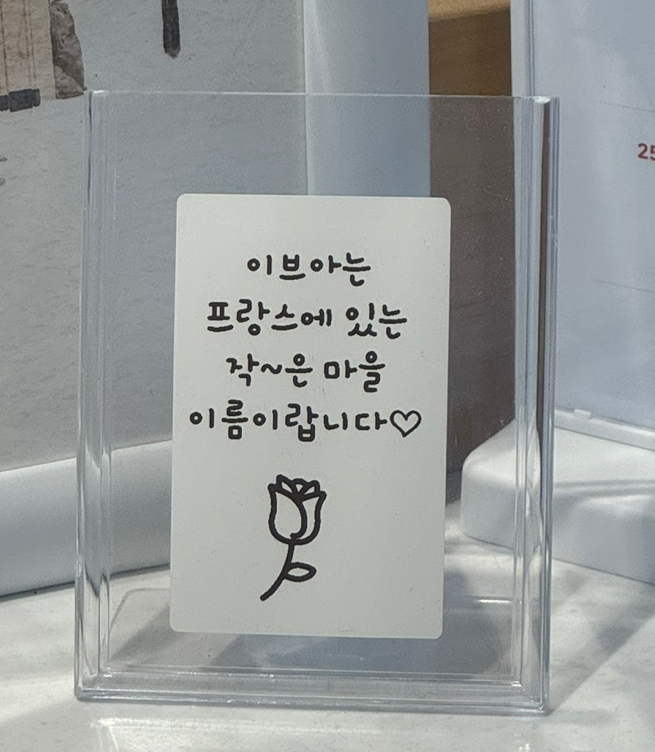 이브아는
프랑스에 있는
작~은 마을
이름이랍니다♡
25